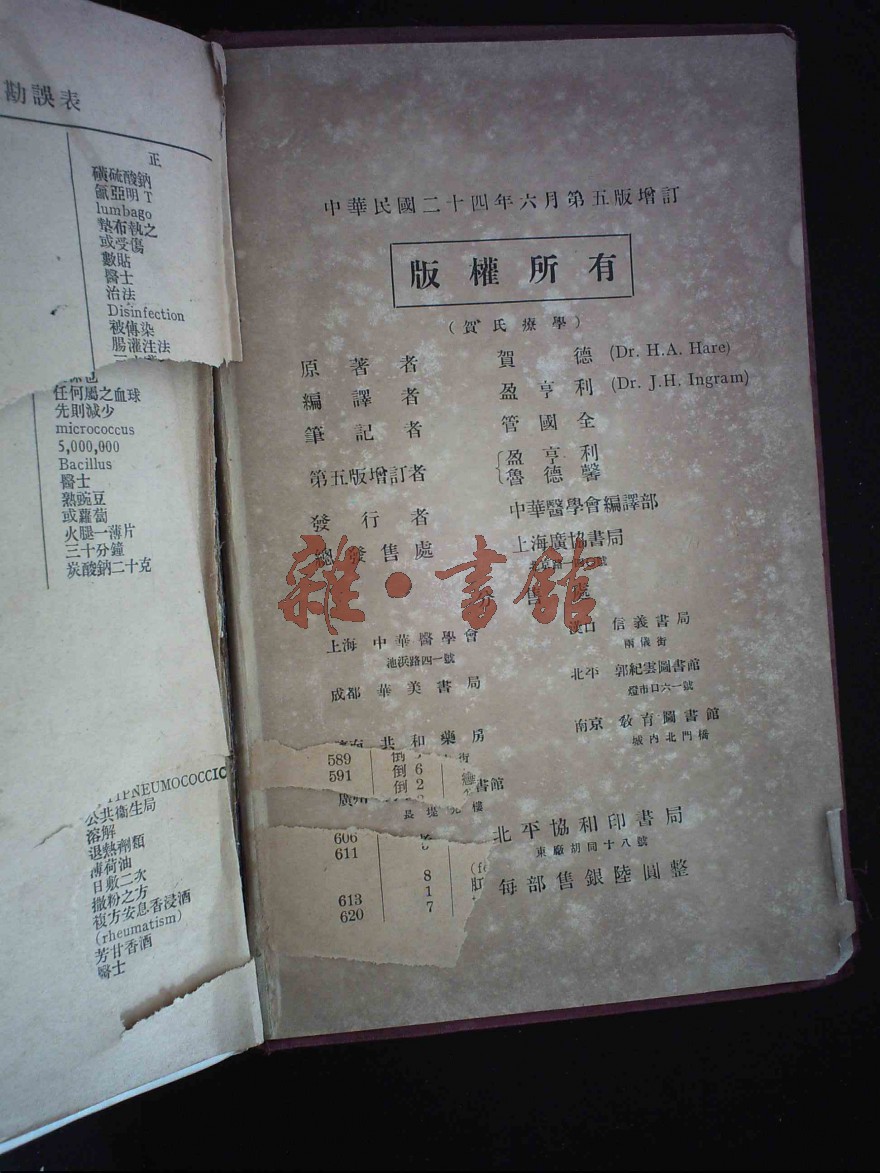 勘誤表
正
磺硫酸鈉
氯亞明 T
lumbago
墊布執之
或受傷
數貼
醫士
治法
Disinfection
被傳染
腸灌注法
任何屬之血球
先則減少
micrococcus
5,000,000
Bacillus
醫士
熟豌豆
或蘿蔔
火腿一薄片
三十分鐘
炭酸鈉二十克
PNEUMOCOCCIC
公共衞生局
溶解
退熱劑類
薄荷油
日敷二次
撒粉之方
複方安息香浸酒
(rheumatism)
芳甘香酒
醫士
中華民國二十四年六月第五版增訂
版權所有
(賀氏療學)
原著者 賀德 (Dr. H.A. Hare)
編譯者 盈亨利 (Dr. J.H. Ingram)
筆記者 管國全
第五版增訂者 盈亨利
魯德馨
發行者 中華醫學會編譯部
總發售處 上海廣協書局
雜·書館
售處
上海 中華醫學會
池浜路四一號
漢口 信義書局
兩儀街
成都 華美書局
北平 郭紀雲圖書館
燈市口六一號
共和藥房
南京 教育圖書館
城內北門橋
589 倒 街
591 倒 6
倒 2 書館
廣州
606
611
8
1
613
620 7
北平協和印書局
東廠胡同十八號
每部售銀陸圓整